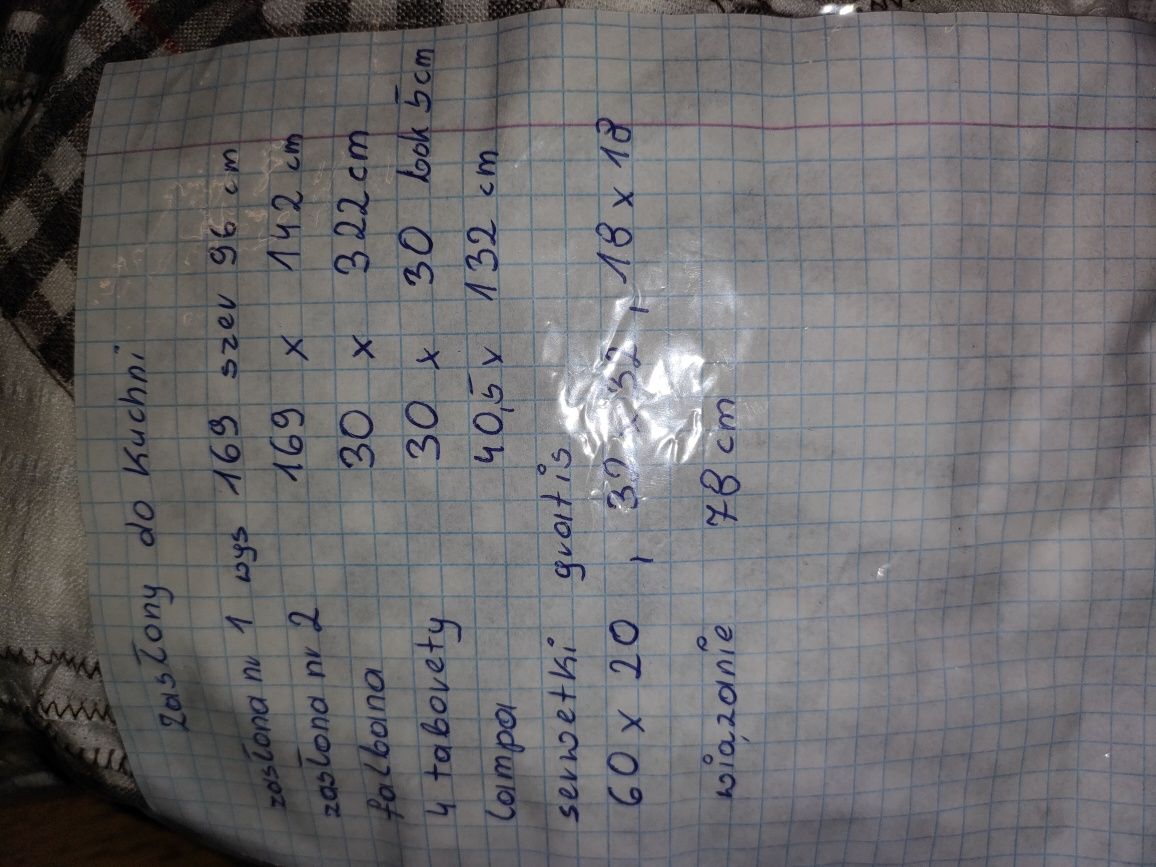 zasłony do kuchni
zasłona nr 1 wys 169 szer 96 cm
zasłona nr 2 169 x 142 cm
falbana 30 x 322 cm
4 taborety 30 x 30 bok 5 cm
lampa 40,5 x 132 cm
serwetki gratis
60 x 20 , 32 x 32 , 18 x 18
wiązanie 78 cm